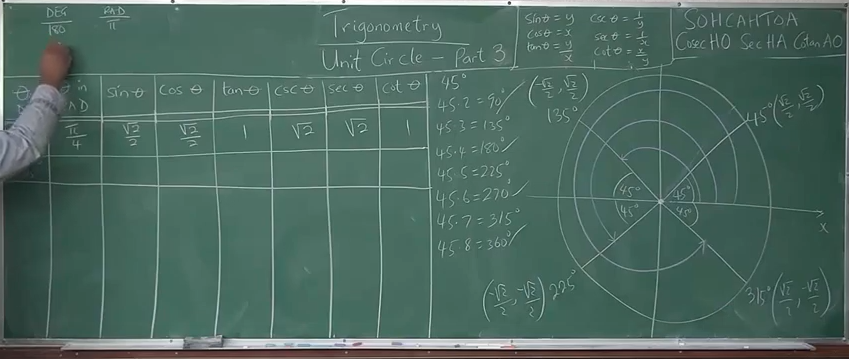 DEG/180 RAD/π
Trigonometry
Unit Circle - Part 3
Sinθ = y cscθ = 1/y
cosθ = x secθ = 1/x
tanθ = y/x cotθ = x/y
SOHCAHTOA
CosecHO SecHA CotanAO
θ θ in RAD sinθ cosθ tanθ cscθ secθ cotθ
π/4 √2/2 √2/2 1 √2 √2 1
45°
45·2 = 90° ✓
45·3 = 135°
45·4 = 180° ✓
45·5 = 225°
45·6 = 270° ✓
45·7 = 315°
45·8 = 360° ✓
(-√2/2, √2/2)
135°
45° (√2/2, √2/2)
45° 45°
45° 45°
x
(-√2/2, -√2/2) 225°
315° (√2/2, -√2/2)